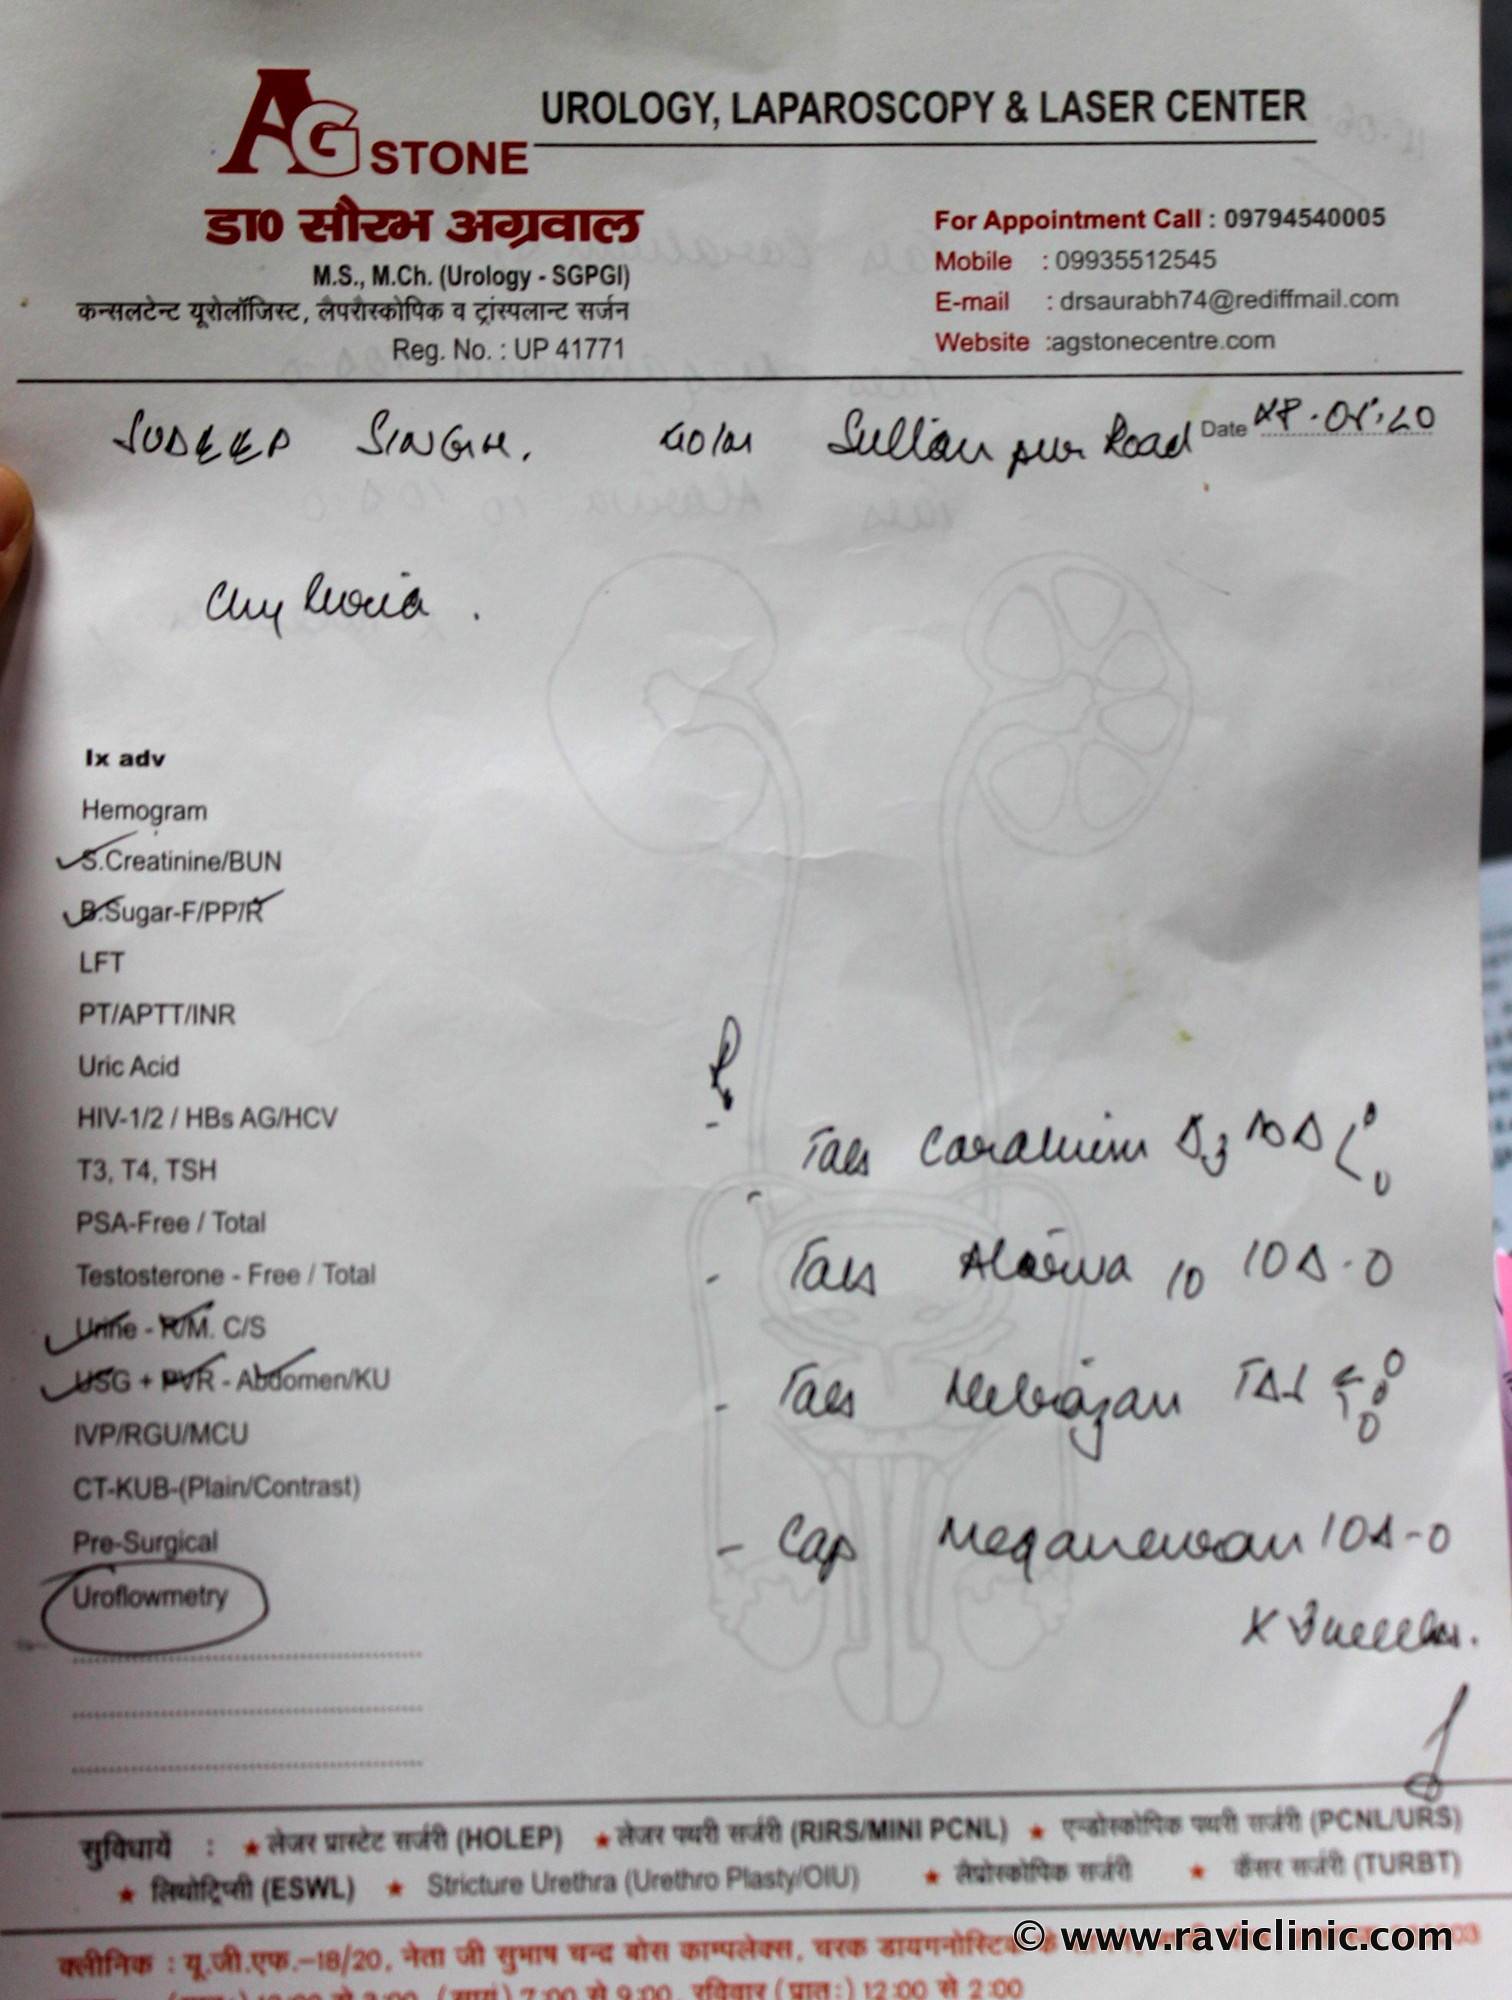 AG STONE
UROLOGY, LAPAROSCOPY & LASER CENTER
डा० सौरभ अग्रवाल
M.S., M.Ch. (Urology - SGPGI)
कन्सलटेन्ट यूरोलॉजिस्ट, लैपरौस्कोपिक व ट्रांस्पलान्ट सर्जन
Reg. No. : UP 41771
For Appointment Call : 09794540005
Mobile : 09935512545
E-mail : drsaurabh74@rediffmail.com
Website :agstonecentre.com
SUDEEP SINGH. 40/M Sultan pur Road Date
Chyluria.
Ix adv
Hemogram
S.Creatinine/BUN
B.Sugar-F/PP/R
LFT
PT/APTT/INR
Uric Acid
HIV-1/2 / HBs AG/HCV
T3, T4, TSH
PSA-Free / Total
Testosterone - Free / Total
Urine - R/M. C/S
USG + PVR - Abdomen/KU
IVP/RGU/MCU
CT-KUB-(Plain/Contrast)
Pre-Surgical
Uroflowmetry
Tab D3
Tab 10 1OD-0
Tab TDS
Cap 1OD-0
X 3 weeks.
सुविधायें : ★ लेजर प्रास्टेट सर्जरी (HOLEP) ★ लेजर पथरी सर्जरी (RIRS/MINI PCNL) ★ एन्डोस्कोपिक पथरी सर्जरी (PCNL/URS)
★ लिथोट्रिप्सी (ESWL) ★ Stricture Urethra (Urethro Plasty/OIU) ★ लैप्रोस्कोपिक सर्जरी ★ कैंसर सर्जरी (TURBT)
क्लीनिक : यू.जी.एफ.–18/20, नेता जी सुभाष चन्द्र बोस काम्पलेक्स, चरक डायगनोस्टिक
(सायं) 7:00 से 9:00, रविवार (प्रातः) 12:00 से 2:00
© www.raviclinic.com